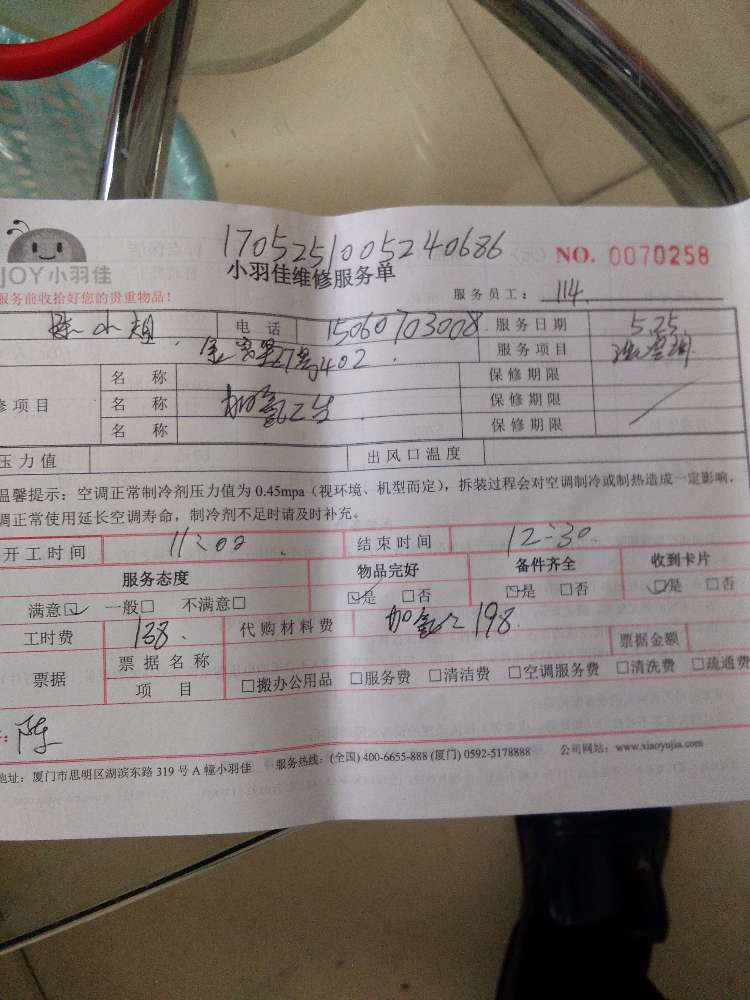 1705251005240686
NO. 0070258
JOY小羽佳
小羽佳维修服务单
服务前收拾好您的贵重物品！
服务员工： 114
陈小姐 电 话 15060703008 服务日期 5.25
27号402 服务项目
名 称 保修期限
修项目 名 称 加氟2台 保修期限
名 称 保修期限
压力值 出风口温度
温馨提示：空调正常制冷剂压力值为 0.45mpa（视环境、机型而定），拆装过程会对空调制冷或制热造成一定影响，
调正常使用延长空调寿命，制冷剂不足时请及时补充。
开工时间 11:00 结束时间 12:30
服务态度 物品完好 备件齐全 收到卡片
满意☑ 一般□ 不满意□ ☑是 □否 ☑是 □否 ☑是 □否
工时费 138 代购材料费 加氟 198 票据金额
票据 票据名称
项 目 □搬办公用品 □服务费 □清洁费 □空调服务费 □清洗费 □疏通费
陈
地址：厦门市思明区湖滨东路 319 号 A 幢小羽佳 服务热线：(全国) 400-6655-888 (厦门) 0592-5178888 公司网站：www.xiaoyujia.com